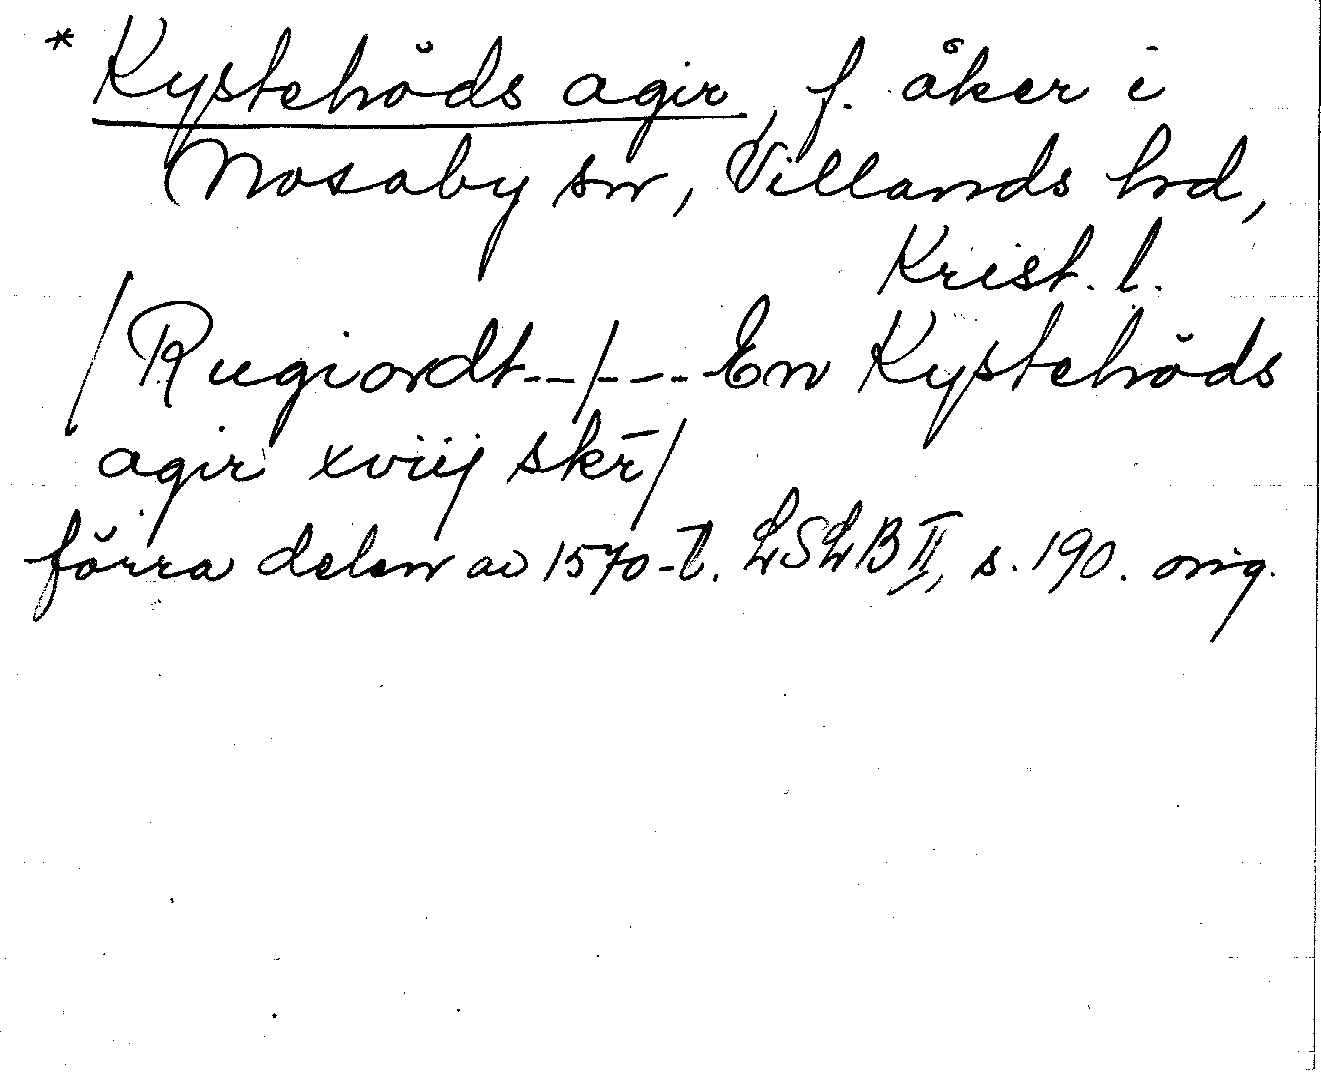 * Kystehöds agir, f. åker i
Nosaby sn, Villands hd,
Krist. l.
/Rugiordt--/---En Kystehöds
agir xviij skr̄/
förra delen av 1570-t. LSLB II, s. 190. orig.